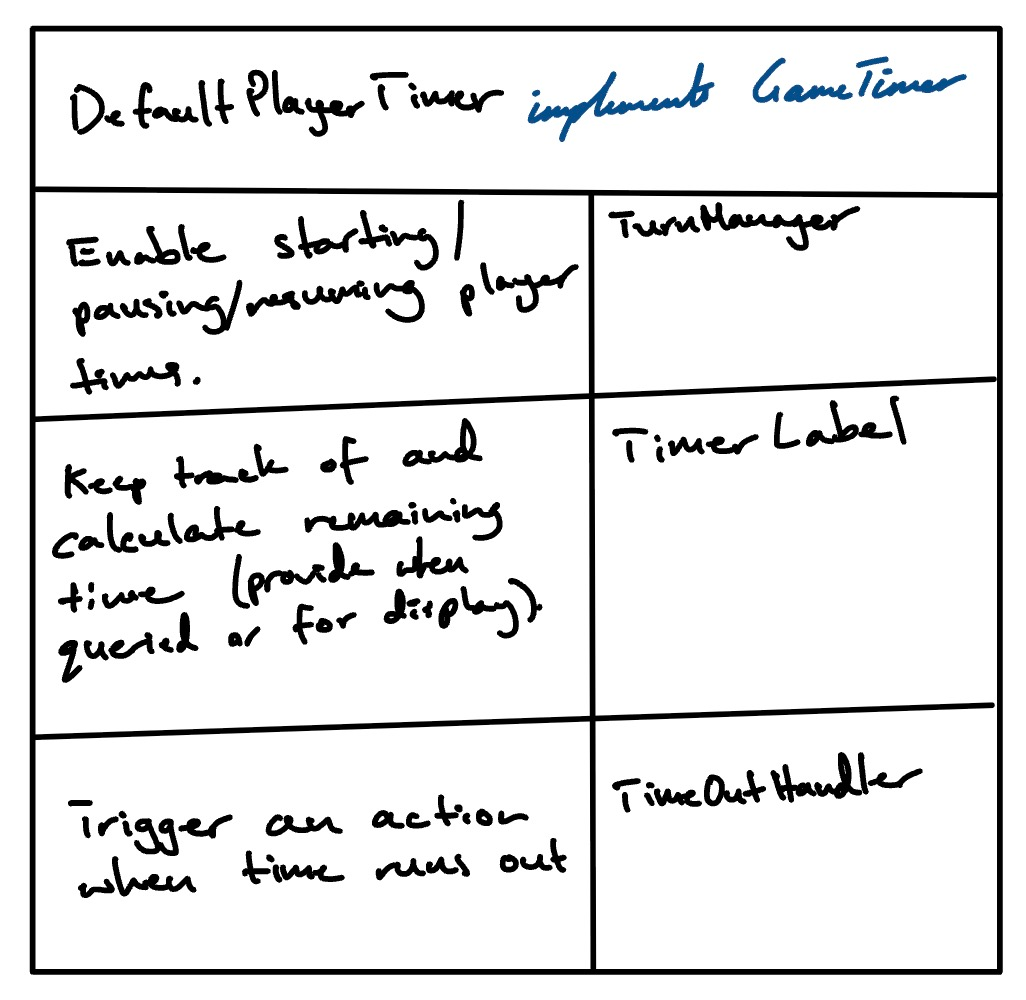 DefaultPlayerTimer implements GameTimer
Enable starting/
pausing/resuming player
times.
TurnManager
Keep track of and
calculate remaining
time (provide when
queried or for display).
Timer Label
Trigger an action
when time runs out
TimeOutHandler